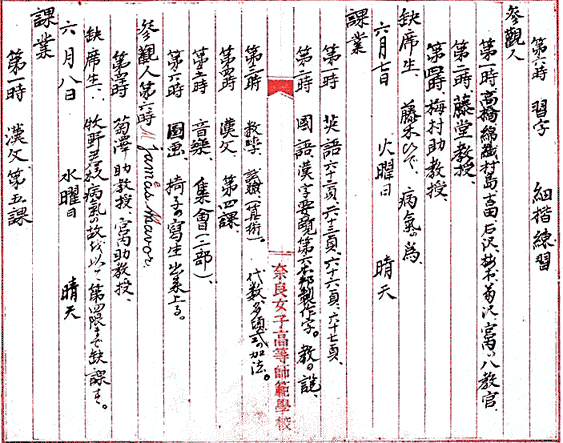 第六時 習字 細楷練習
参觀人
第一時高橋綿織村島吉田石沢鈴木菊沢宮内八教官
第二時藤堂教授、
第四時梅村助教授、
缺席生、藤木 病氣の為、
六月七日 火曜日 晴天
課業
第一時 英語六十二頁、六十三頁、六十六頁、六十七頁、
第二時 國語漢字要覧第六 製作字。教の説、
第三時 数学、試驗(算術)、代数、多項式の加法。
第四時 漢文、第四課、
第五時 音樂、集會(二部)、
第六時 圖画、椅子の寫生出来上る。
参觀人第六時 James Mavor
第五時 菊澤助教授、宮内助教授、
缺席生、牧野 病氣の故を以て第四限まで缺課す。
六月八日 水曜日 晴天
課業
第一時 漢文、第五課
奈良女子高等師範學校